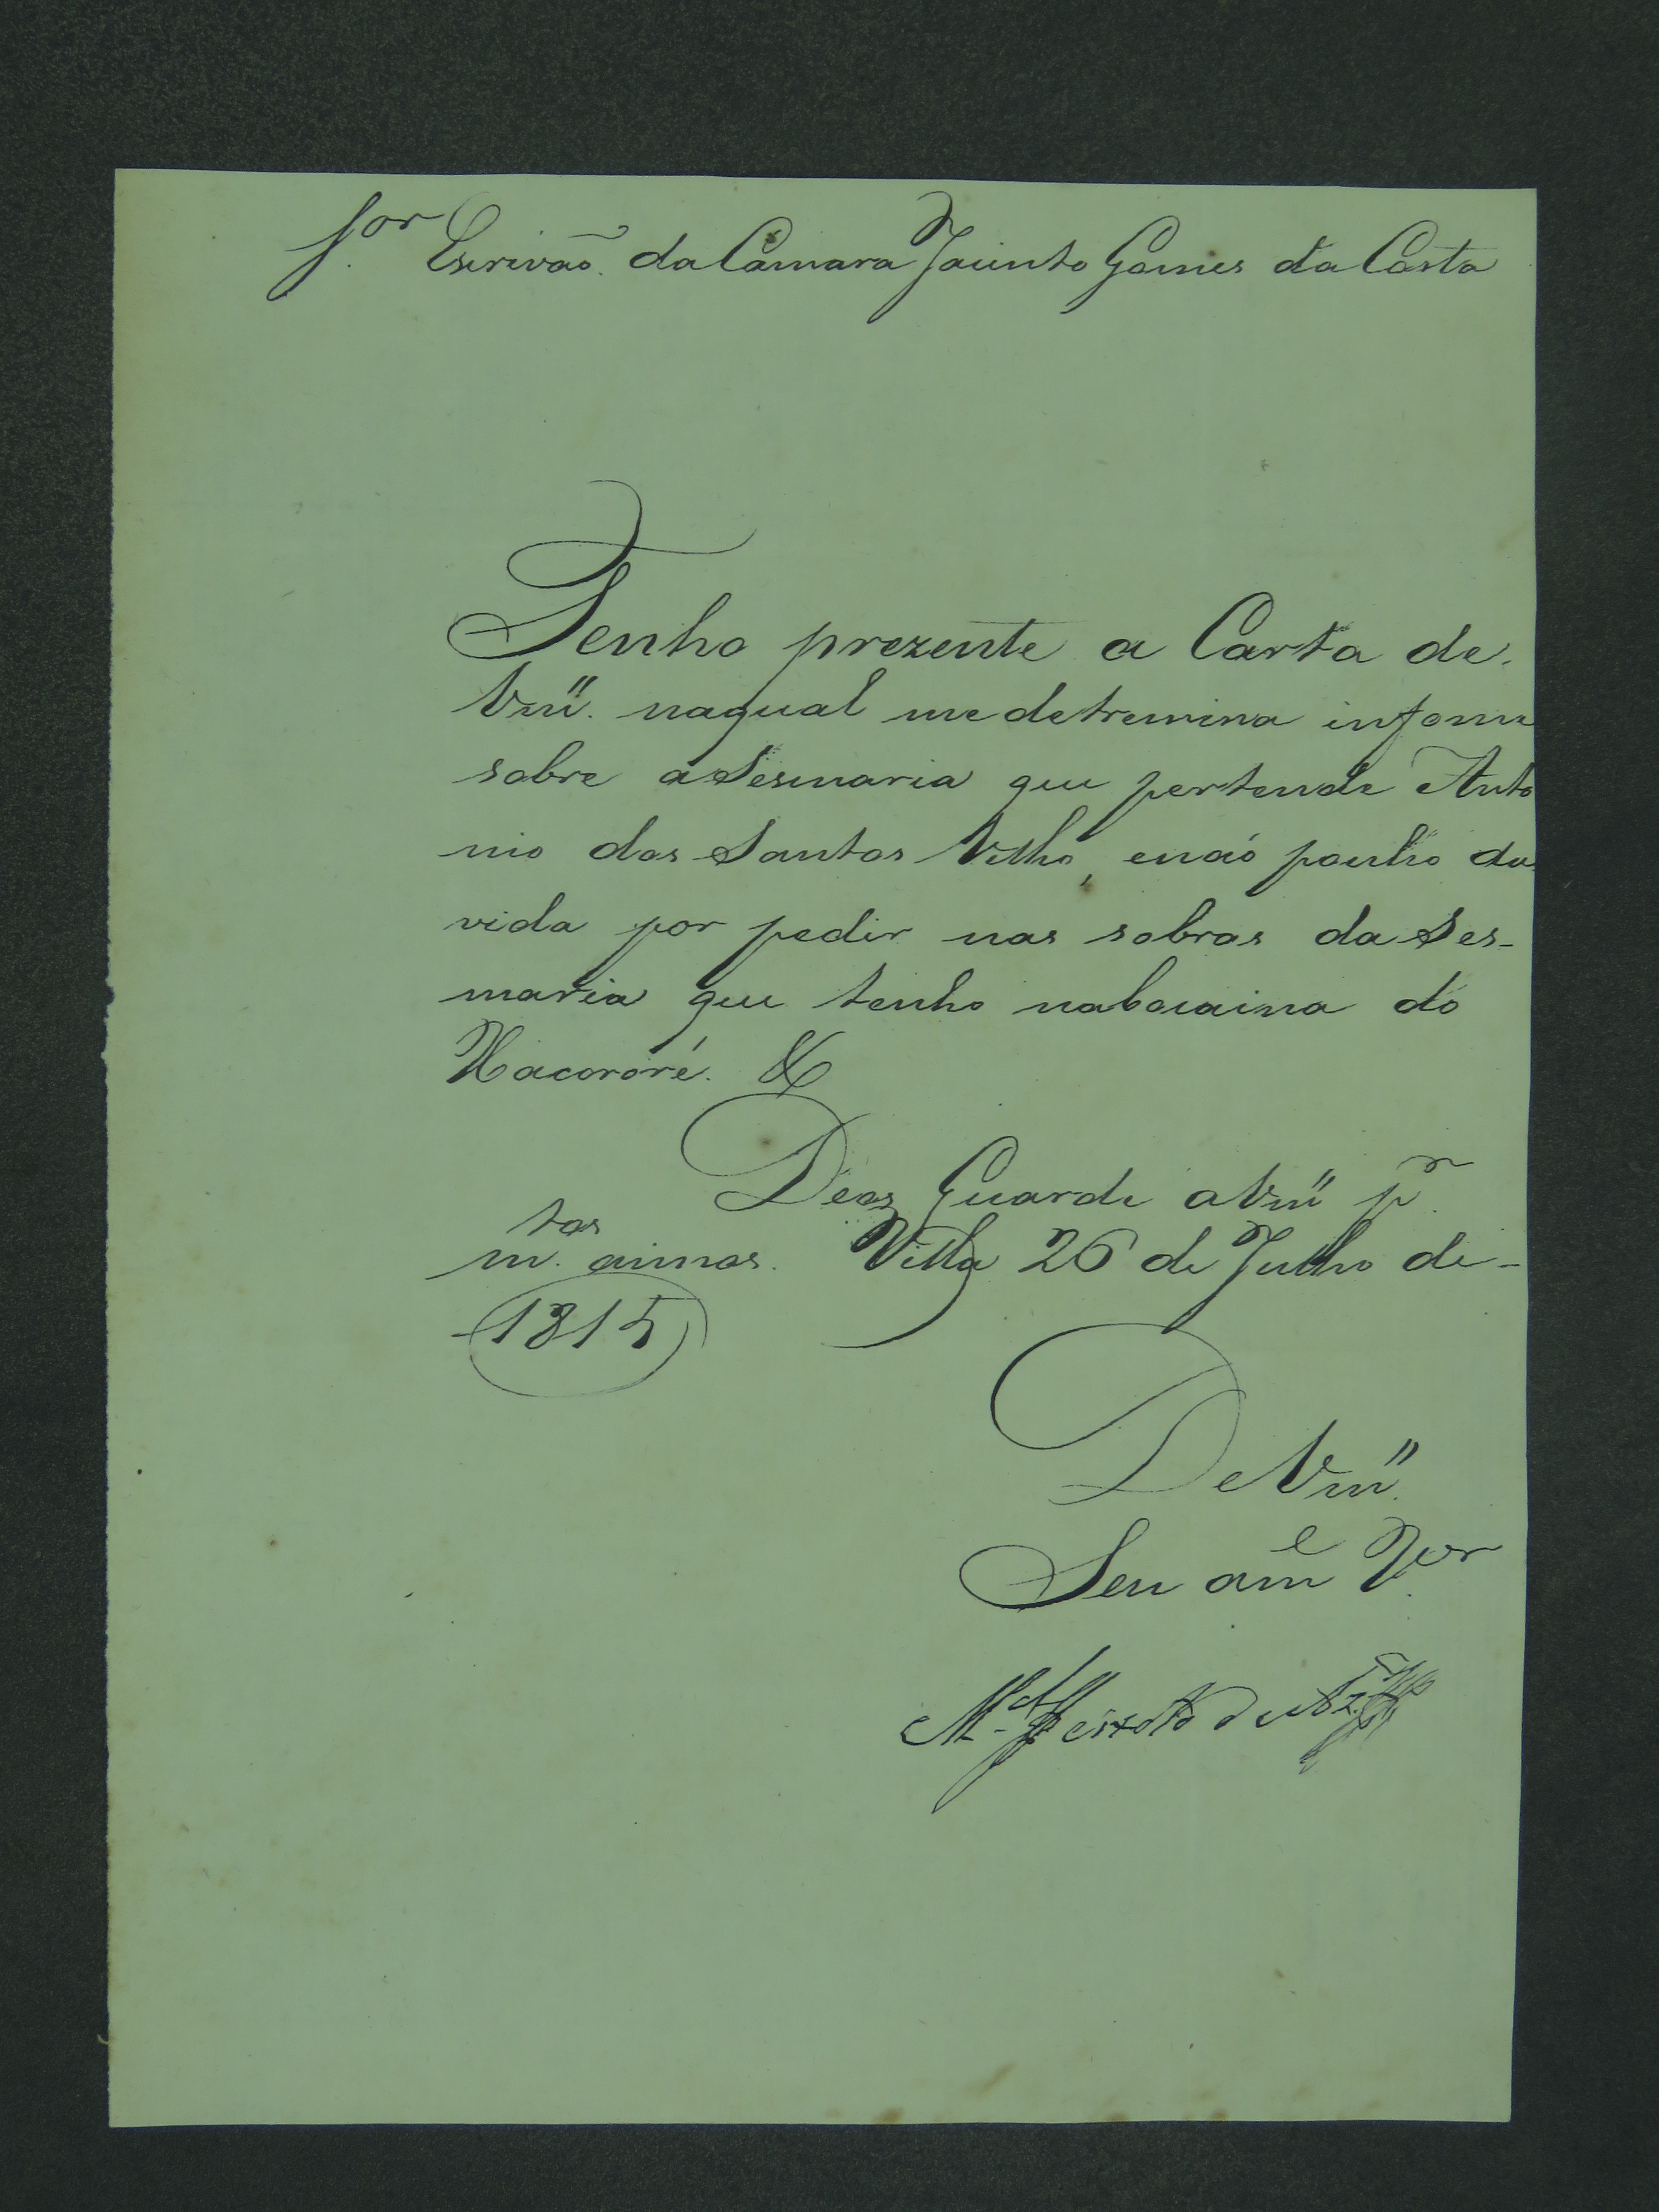 S.or Escrivaõ. da Camara Jacinto Gomes da Costa
Tenho prezente a Carta de.
Vm.ce naqual me detremina informe
sobre a Sesmaria que pertende Anto
nio dos Santos Velho, enaó ponho du
vida por pedir nas sobras da Ses-
maria que tenho nabocaina dó
Hacororé. &
Deos Guarde a Vm.ce p.r
m.tos annos. Villa 26 de Julho de-
1815
De Vm.ce
Seu am.e V.or
M.el Peixoto de